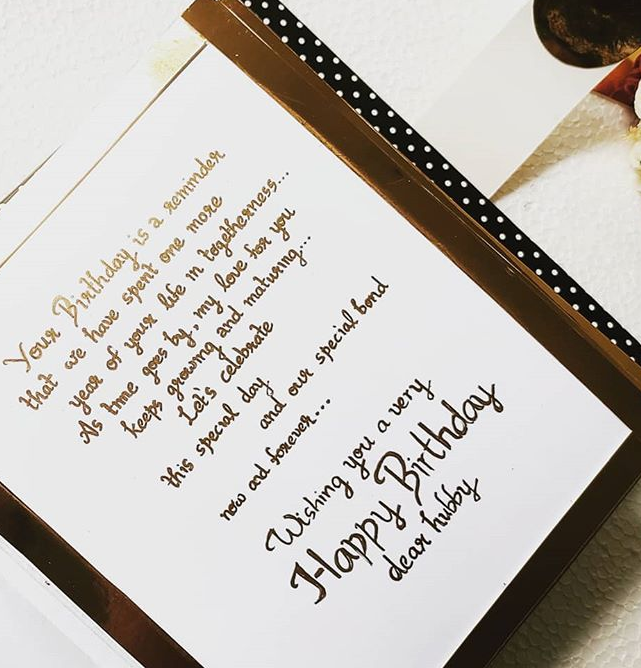 Your Birthday is a reminder
that we have spent one more
year of your life in togetherness...
As time goes by, my love for you
keeps growing and maturing...
Let's celebrate
this special day
and our special bond
now and forever...
Wishing you a very
Happy Birthday
dear hubby